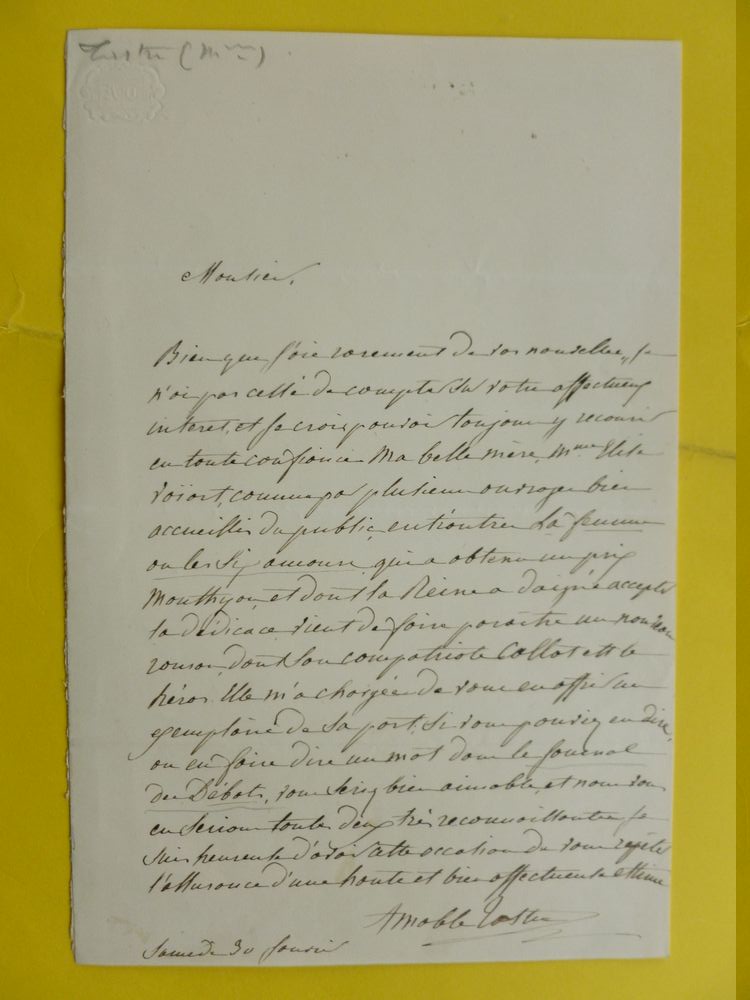 Tastu (Mme)
Monsieur,
Bien que j'aie rarement de vos nouvelles, je
n'ai pas cessé de compter sur votre affectueux
interet, et je crois pouvoir toujours y recourir
en toute confiance. Ma belle mère, Mme Elise
Voïart, connue par plusieurs ouvrages bien
accueillis du public, entr'autres La femme
ou les Six amours, qui a obtenu un prix
Monthyon, et dont la Reine a daigné accepter
la dédicace vient de faire paraitre un nouveau
roman, dont son compatriote Callot est le
héros. Elle m'a chargée de vous en offrir un
exemplaire de sa part. Si vous pouviez en dire,
ou en faire dire un mot dans le Journal
des Débats, vous seriez bien aimable, et nous vous
en serions toutes deux très reconnaissantes. Je
suis heureuse d'avoir cette occasion de vous repéter
l'assurance d'une haute et bien affectueuse estime
Amable Tastu
Samedi 30 Janvier